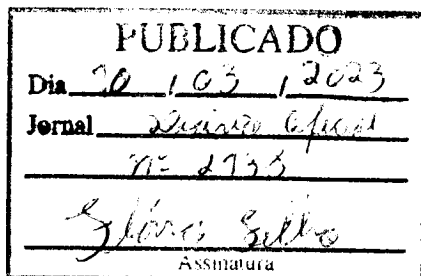 PUBLICADO
Dia 30 / 03 / 2023
Jornal Diário Oficial
Nº 2733
Assinatura